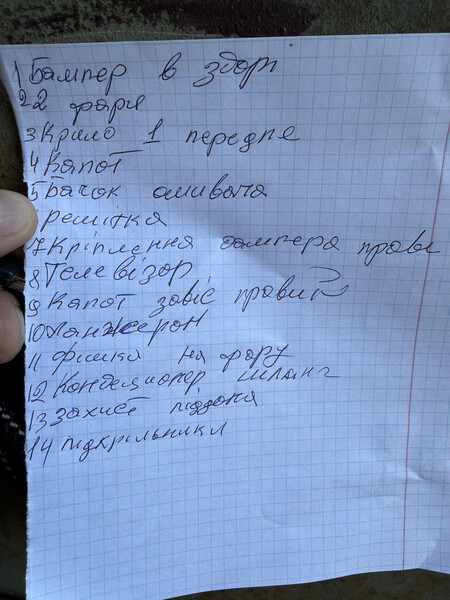 1 Бампер в зборі
2 2 фари
3 Крило 1 переднє
4 Капот
5 Бачок омивача
Решітка
7 Кріплення бампера праве
8 Телевізор
9 Капот завіс правий
10 Ланжерон
11 Фішка на фару
12 Кондеціонер шланг
13 Захист піддона
14 Підкрільники